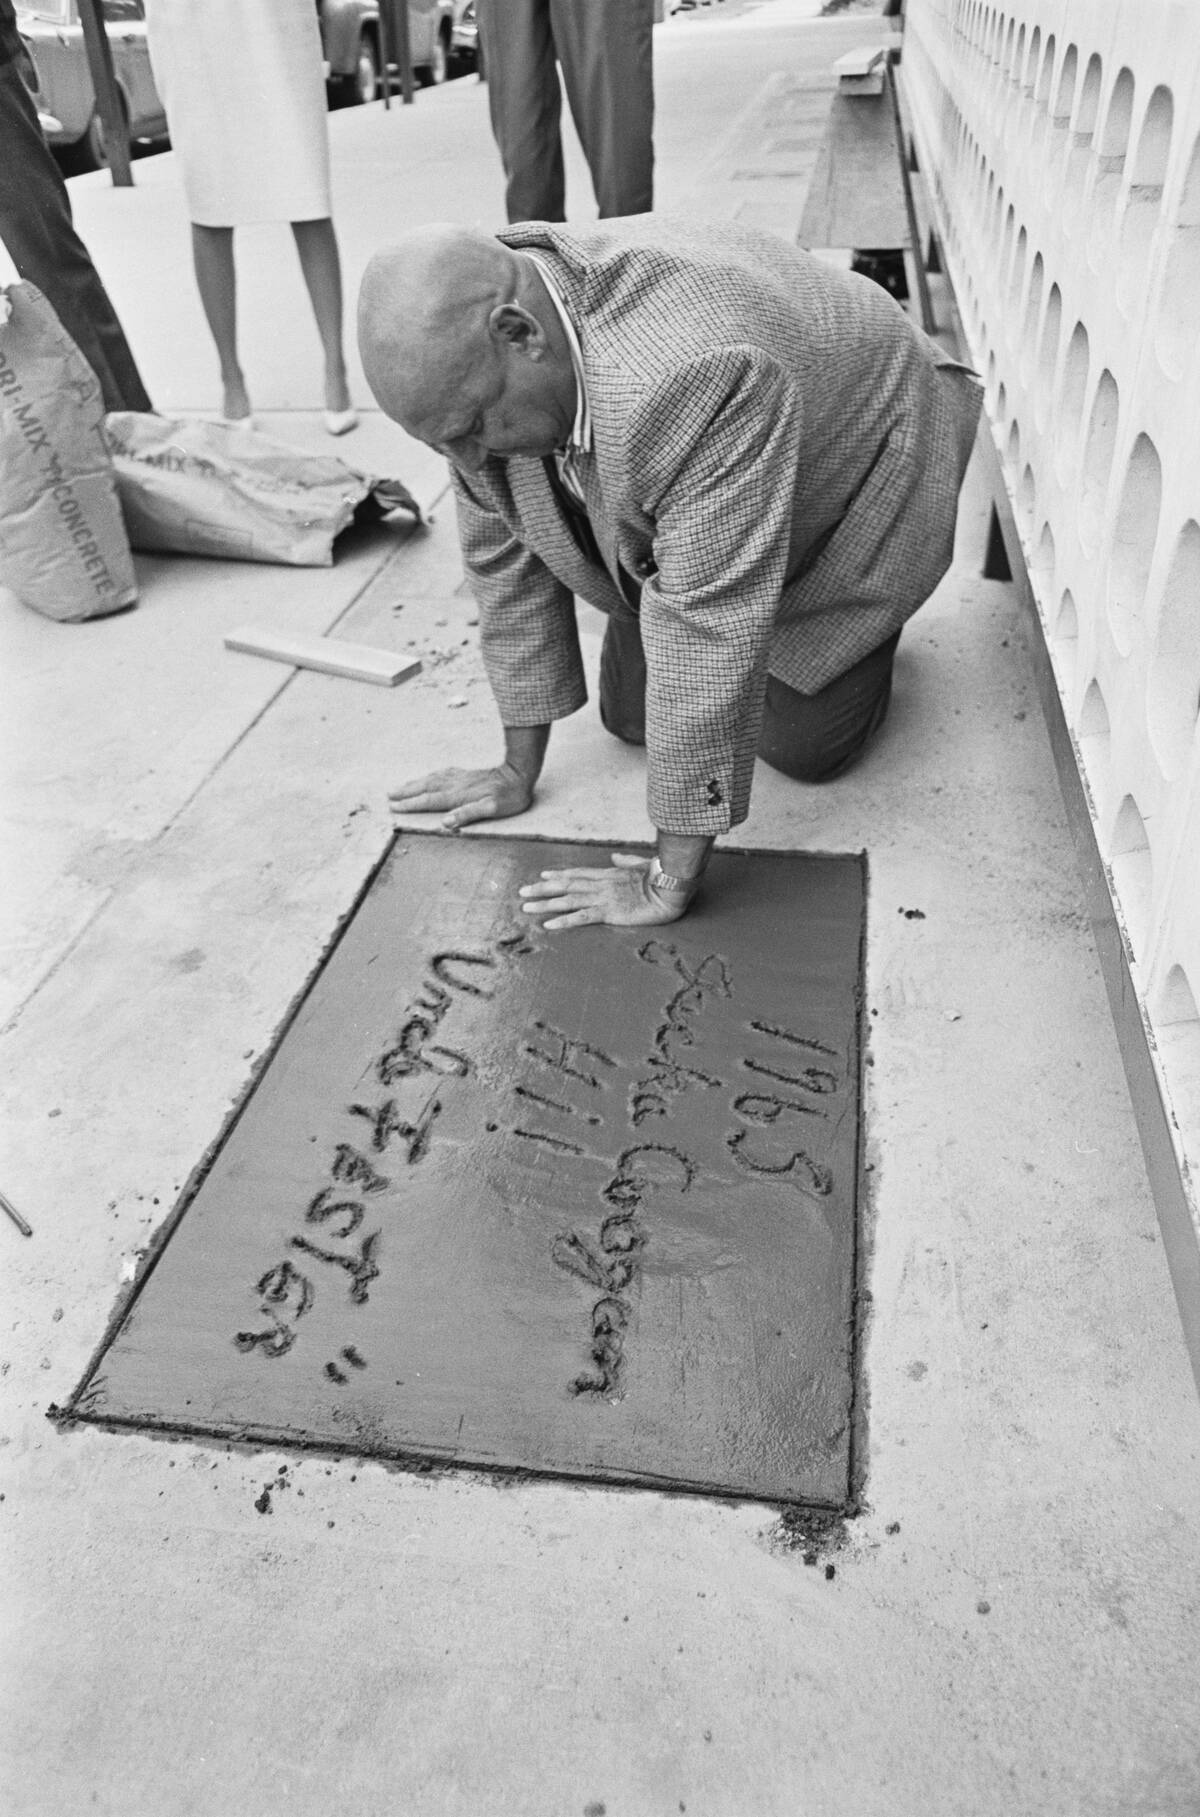 1965
Jackie Coogan
Hi!!
"Uncle FESTER"
DRI-MIX
CONCRETE
RI-MIX